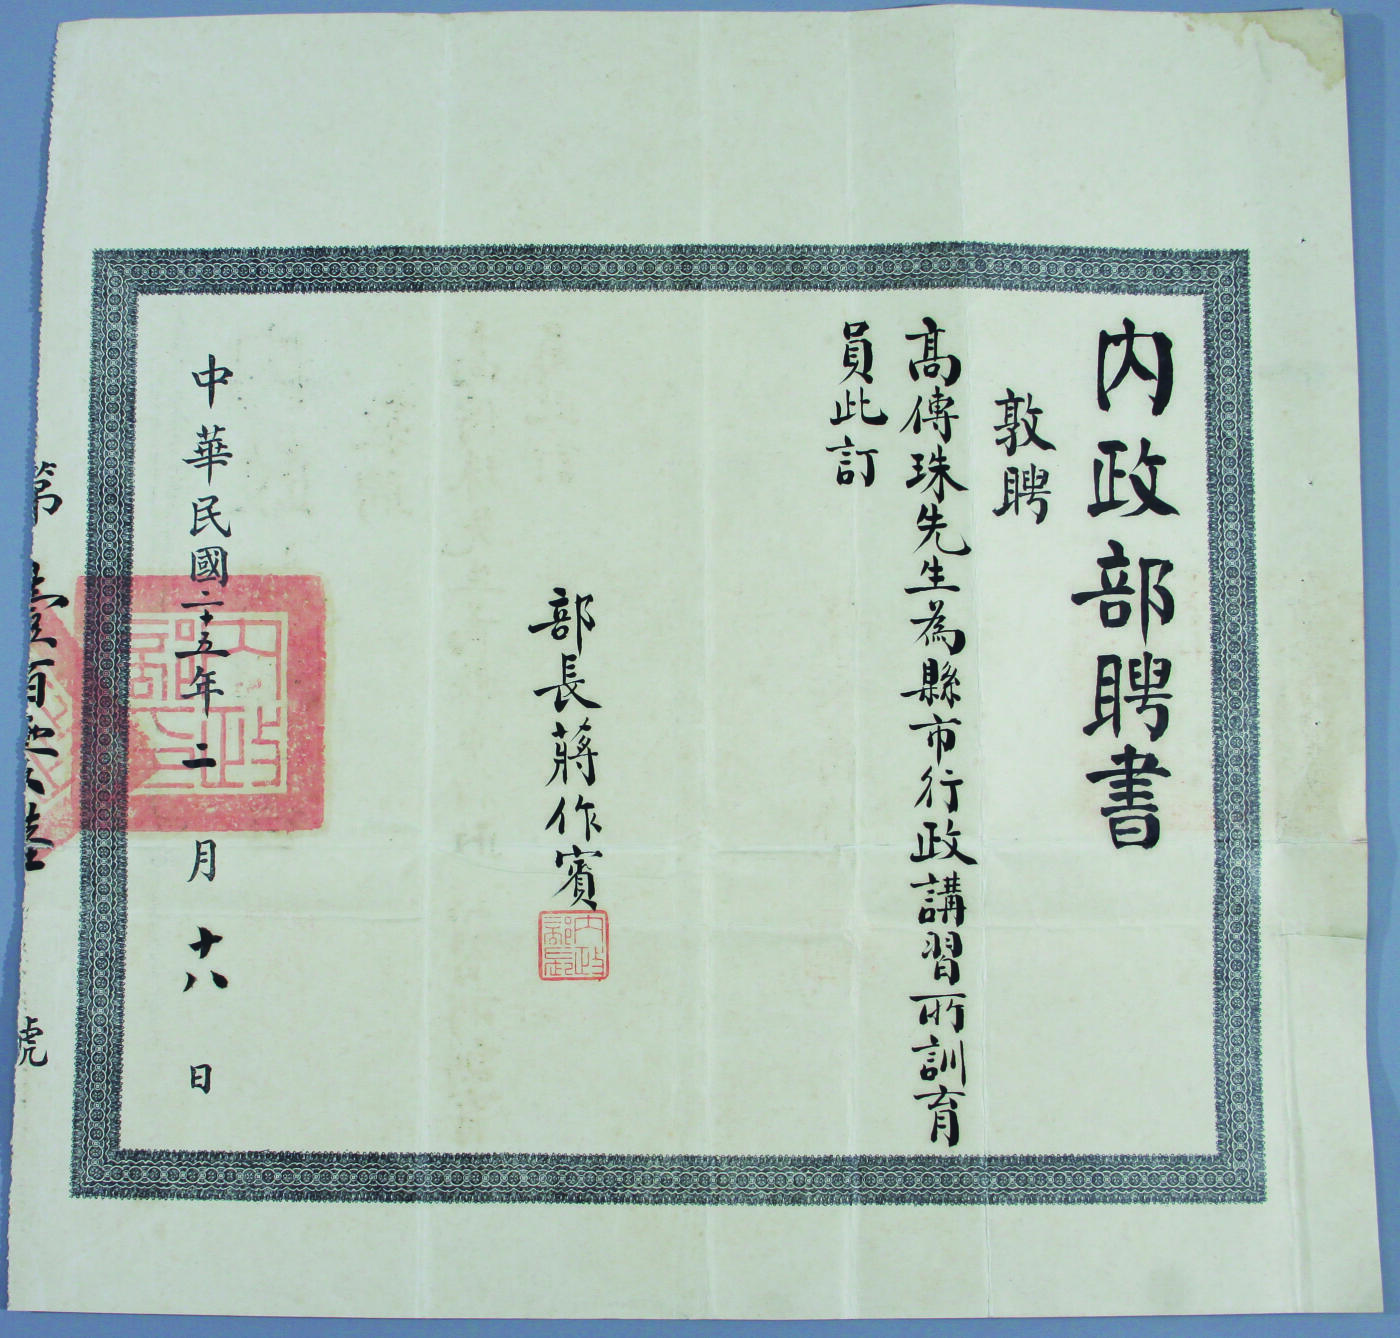 內政部聘書
敦聘
高傳珠先生為縣市行政講習所訓育
員此訂
部長蔣作賓
內政部長
中華民國二十五年二月十八日
內政部印
第壹百
陸
號